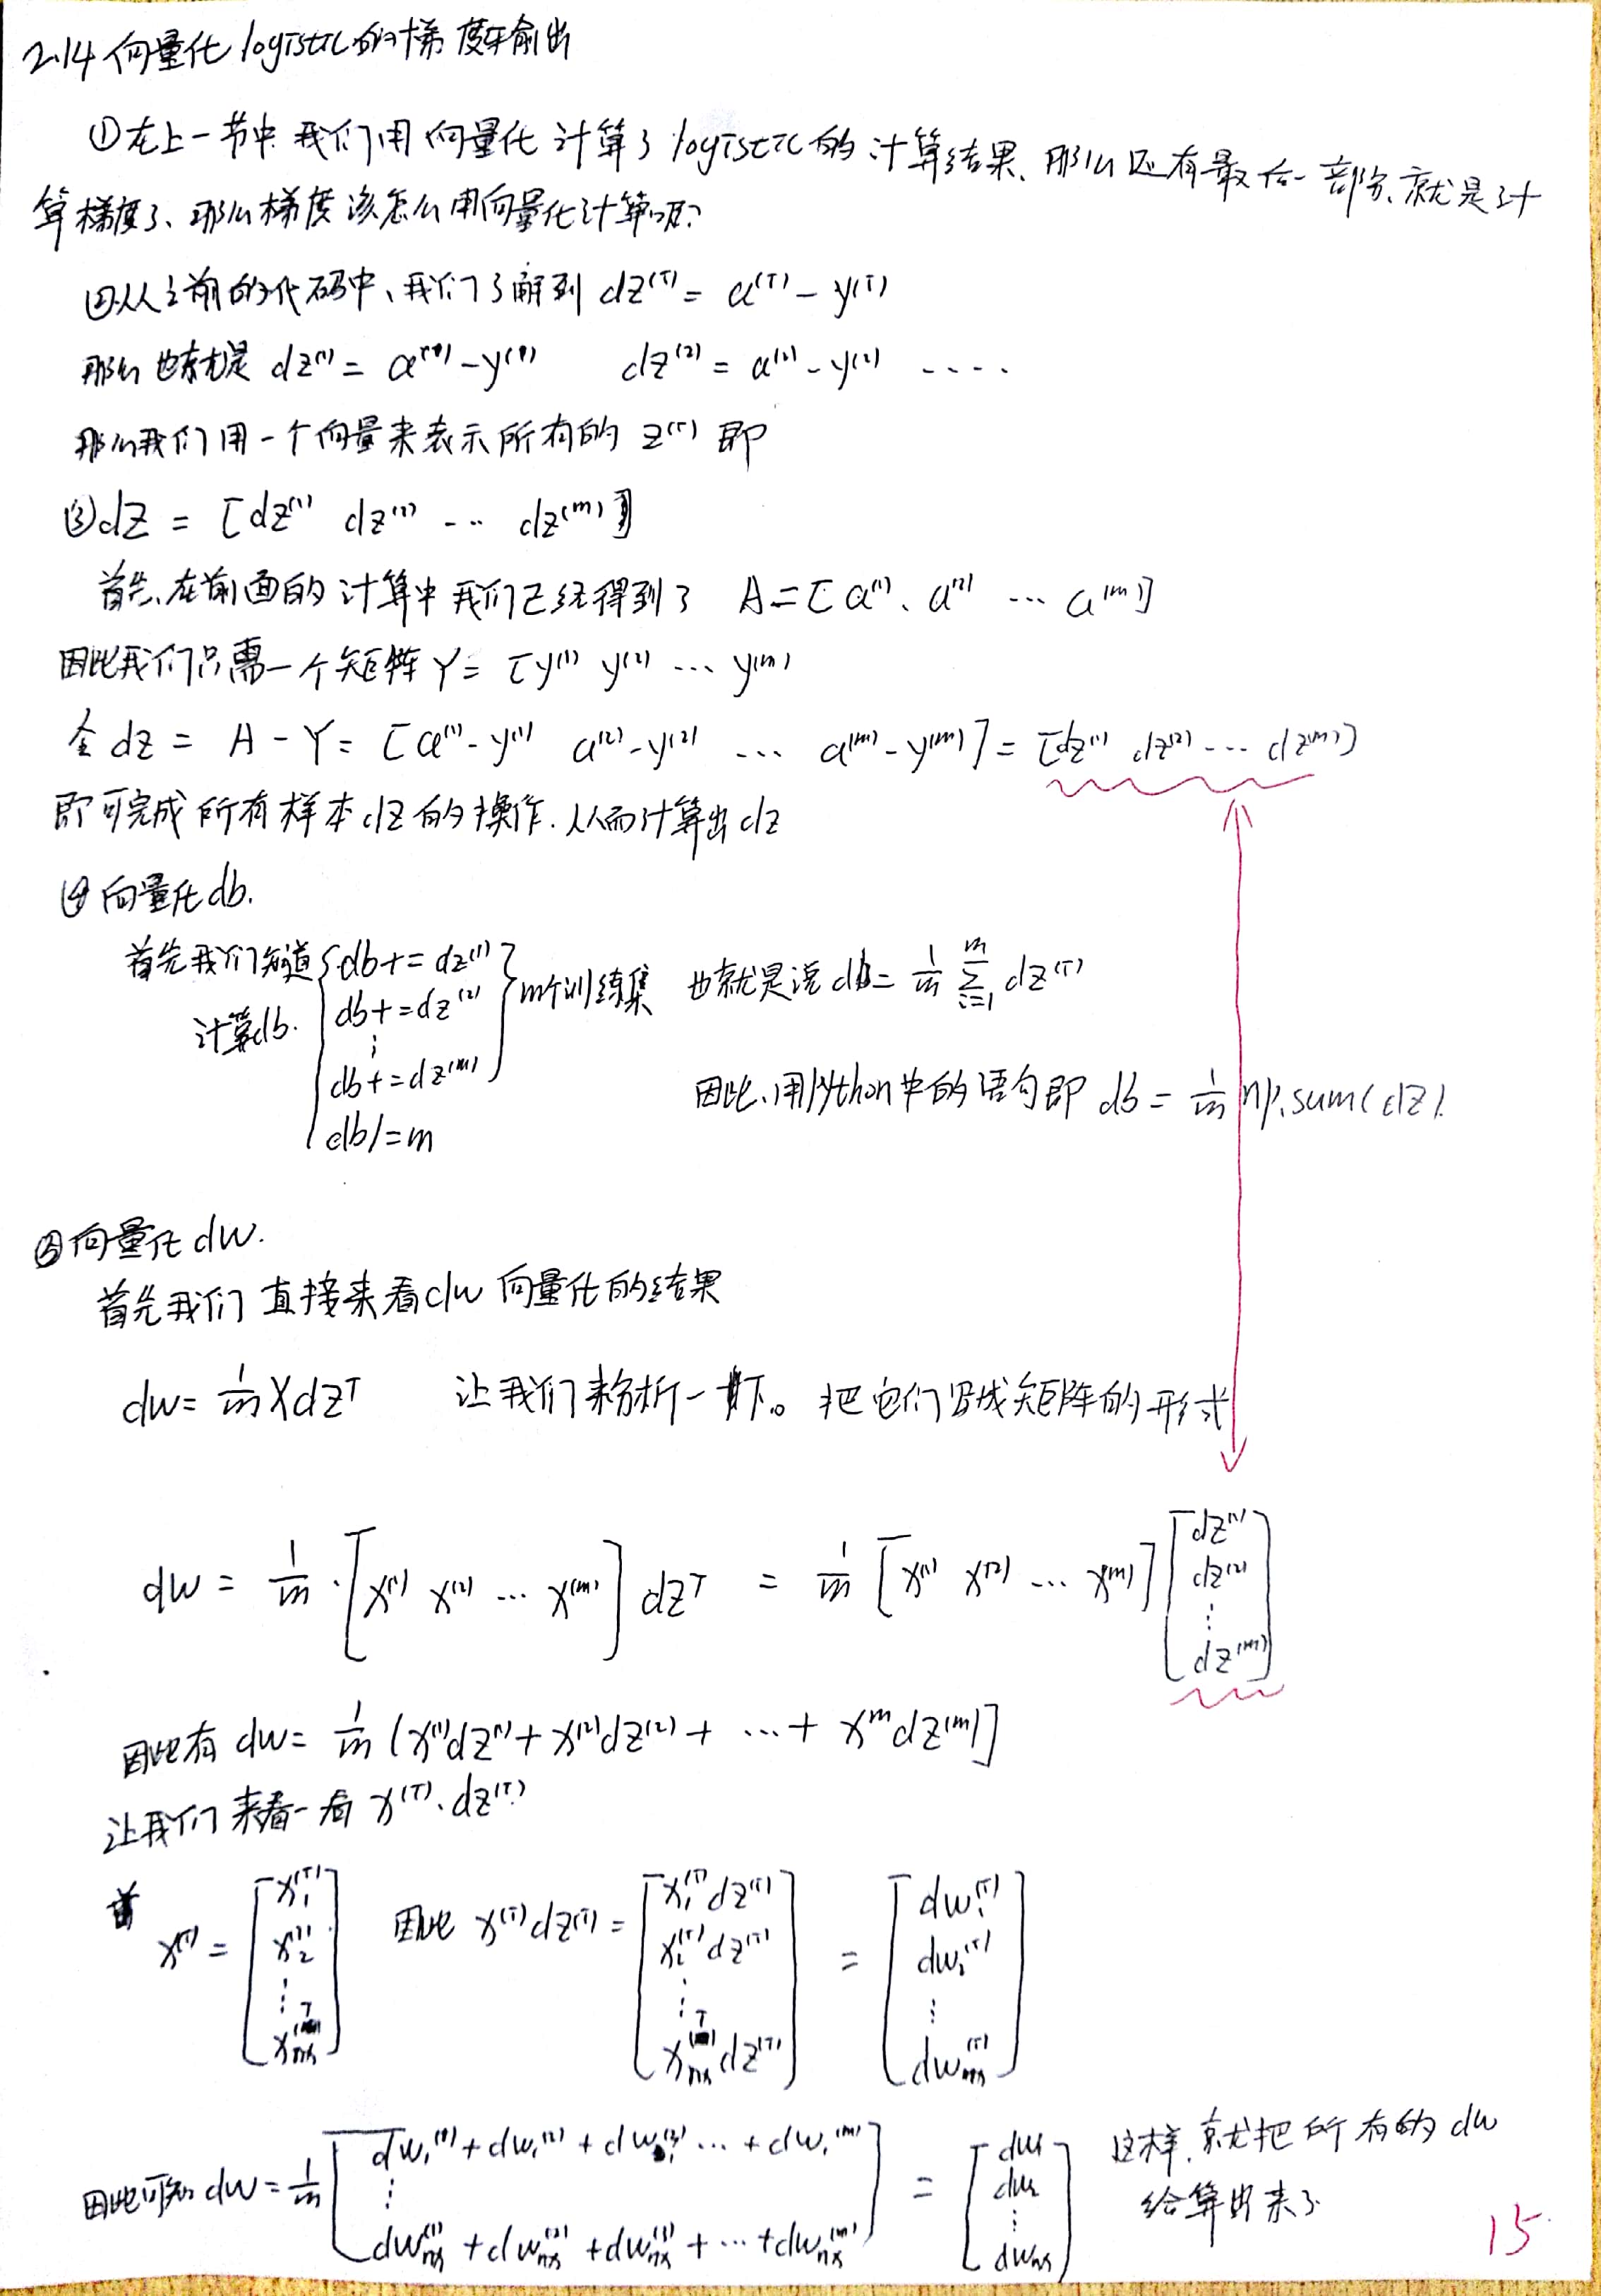 2.14 向量化 logistic 的梯度输出
①在上一节中 我们用向量化 计算了 logistic 的计算结果、那么还有最后一部分、就是计
算梯度了、那么梯度该怎么用向量化计算呢?
②从之前的代码中、我们了解到 dz⁽ⁱ⁾ = a⁽ⁱ⁾ - y⁽ⁱ⁾
那么也就是 dz⁽¹⁾ = a⁽¹⁾ - y⁽¹⁾ dz⁽²⁾ = a⁽²⁾ - y⁽²⁾ ....
那么我们用一个向量来表示所有的 z⁽ⁱ⁾ 即
③dZ = [dz⁽¹⁾ dz⁽²⁾ ... dz⁽ᵐ⁾]
首先、在前面的计算中 我们已经得到了 A = [a⁽¹⁾、a⁽²⁾ ... a⁽ᵐ⁾]
因此我们只需一个矩阵 Y = [y⁽¹⁾ y⁽²⁾ ... y⁽ᵐ⁾
令 dz = A - Y = [a⁽¹⁾-y⁽¹⁾ a⁽²⁾-y⁽²⁾ ... a⁽ᵐ⁾-y⁽ᵐ⁾] = [dz⁽¹⁾ dz⁽²⁾ ... dz⁽ᵐ⁾]
即可完成 所有样本 dz 的操作. 从而计算出 dz
④ 向量化 db.
首先我们知道 计算db. { db+= dz⁽¹⁾
db+= dz⁽²⁾
⋮
db+= dz⁽ᵐ⁾ } m个训练集
db/=m
也就是说 db = 1/m Σᵢ₌₁ᵐ dz⁽ⁱ⁾
因此、用python中的语句即 db = 1/m np.sum(dz).
⑤向量化 dw.
首先我们 直接来看dw 向量化的结果
dw = 1/m X dZᵀ 让我们来分析一下。把它们写成矩阵的形式
dw = 1/m · [x⁽¹⁾ x⁽²⁾ ... x⁽ᵐ⁾] dZᵀ = 1/m [x⁽¹⁾ x⁽²⁾ ... x⁽ᵐ⁾] [dz⁽¹⁾ dz⁽²⁾ ⋮ dz⁽ᵐ⁾]
因此有 dw = 1/m (x⁽¹⁾dz⁽¹⁾ + x⁽²⁾dz⁽²⁾ + ... + xᵐdz⁽ᵐ⁾]
让我们 来看一看 x⁽ⁱ⁾·dz⁽ⁱ⁾
x⁽ⁱ⁾ = [x₁⁽ⁱ⁾ x₂⁽ⁱ⁾ ⋮ xₙₓ⁽ⁱ⁾] 因此 x⁽ⁱ⁾dz⁽ⁱ⁾ = [x₁⁽ⁱ⁾dz⁽ⁱ⁾ x₂⁽ⁱ⁾dz⁽ⁱ⁾ ⋮ xₙₓ⁽ⁱ⁾dz⁽ⁱ⁾] = [dw₁⁽ⁱ⁾ dw₂⁽ⁱ⁾ ⋮ dwₙₓ⁽ⁱ⁾]
因此可知 dw = 1/m [dw₁⁽¹⁾ + dw₁⁽²⁾ + dw₁⁽³⁾ ... + dw₁⁽ᵐ⁾ ⋮ dwₙₓ⁽¹⁾ + dwₙₓ⁽²⁾ + dwₙₓ⁽³⁾ + ... + dwₙₓ⁽ᵐ⁾] = [dw₁ dw₂ ⋮ dwₙₓ]
这样、就把所有的 dw
给算出来了
15